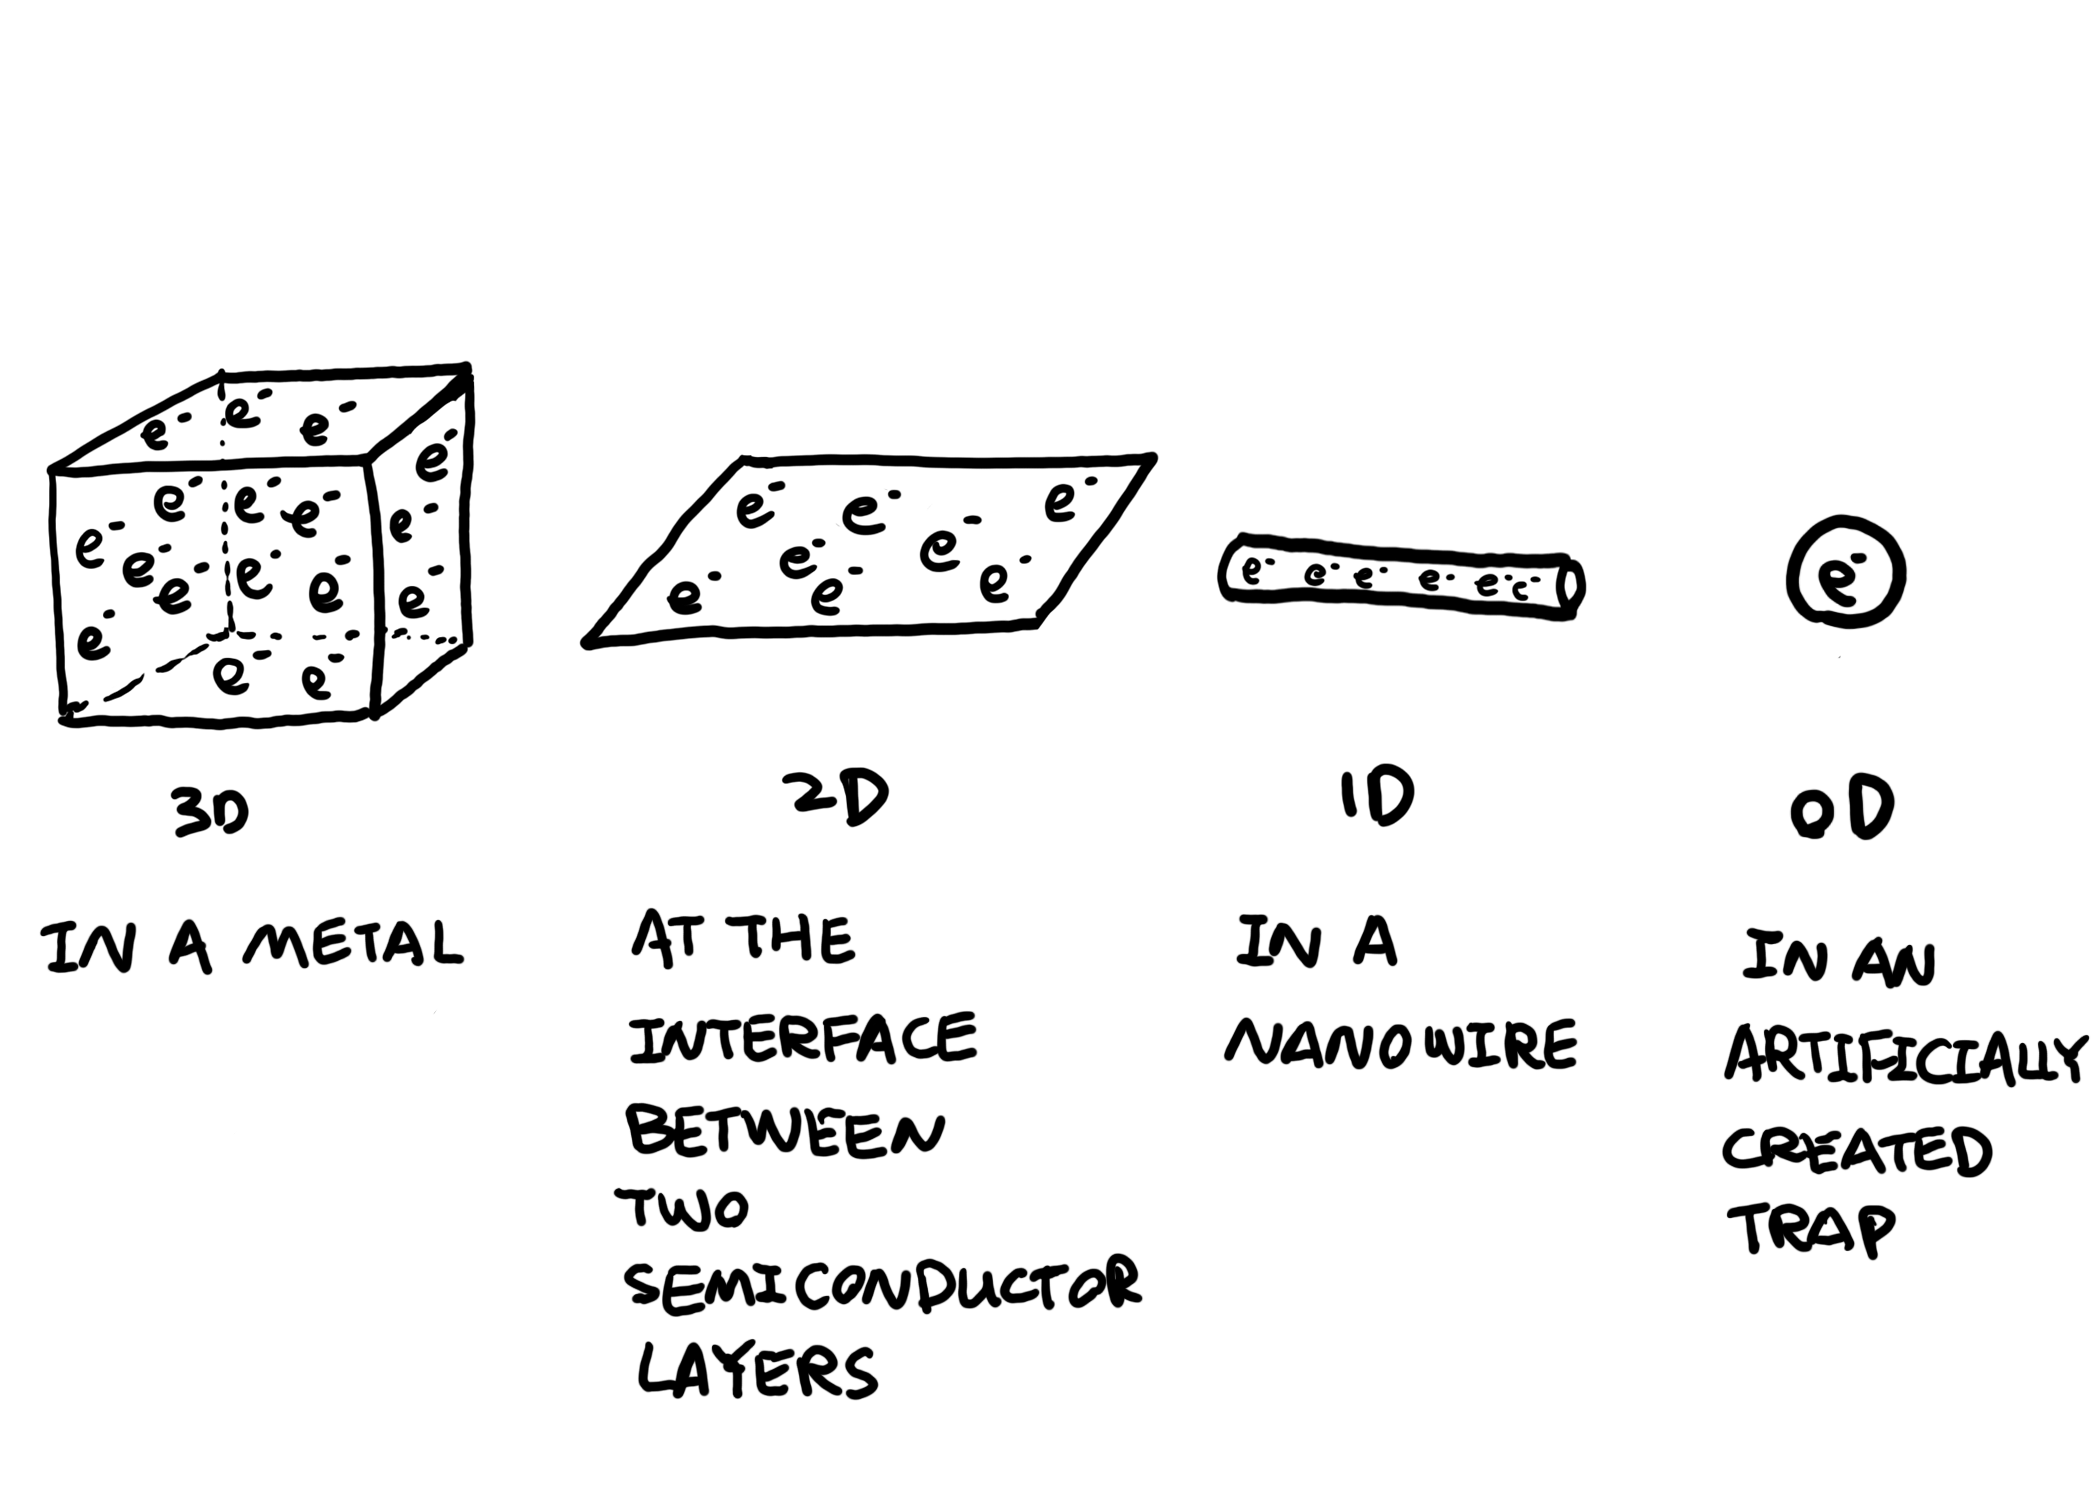 e⁻ e⁻ e⁻
e⁻
e⁻ e⁻ e⁻ e⁻
e⁻ e⁻ e⁻ e⁻ e⁻ e⁻
e⁻ e⁻ e⁻
e⁻ e⁻ e⁻ e⁻
e⁻ e⁻ e⁻ e⁻
e⁻ e⁻ e⁻ e⁻ e⁻ e⁻
e⁻
3D
IN A METAL
2D
AT THE
INTERFACE
BETWEEN
TWO
SEMICONDUCTOR
LAYERS
1D
IN A
NANOWIRE
0D
IN AN
ARTIFICIALLY
CREATED
TRAP